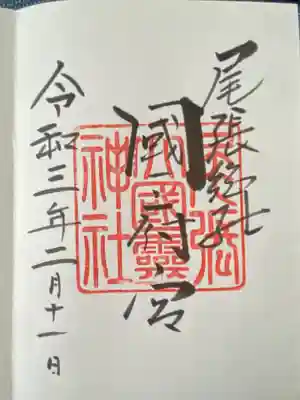 尾張総社
國府宮
令和三年二月十一日
尾張
大國霊
神社